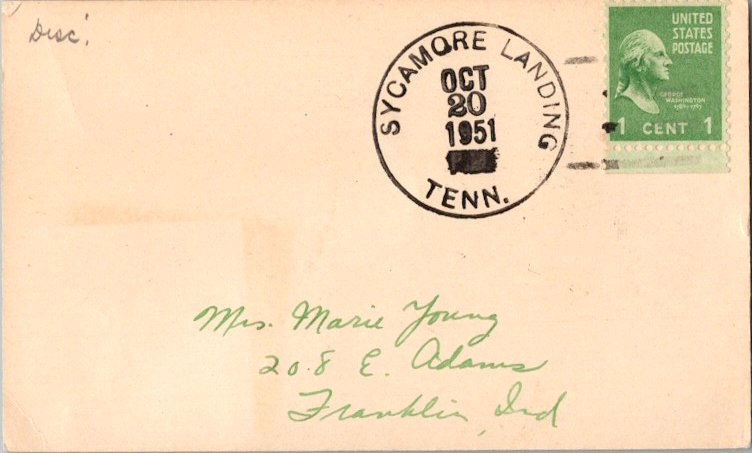 Disc.
SYCAMORE LANDING
OCT
20
1951
TENN.
UNITED
STATES
POSTAGE
GEORGE
WASHINGTON
1789-1797
1 CENT 1
Mrs. Marie Young
208 E. Adams
Franklin, Ind